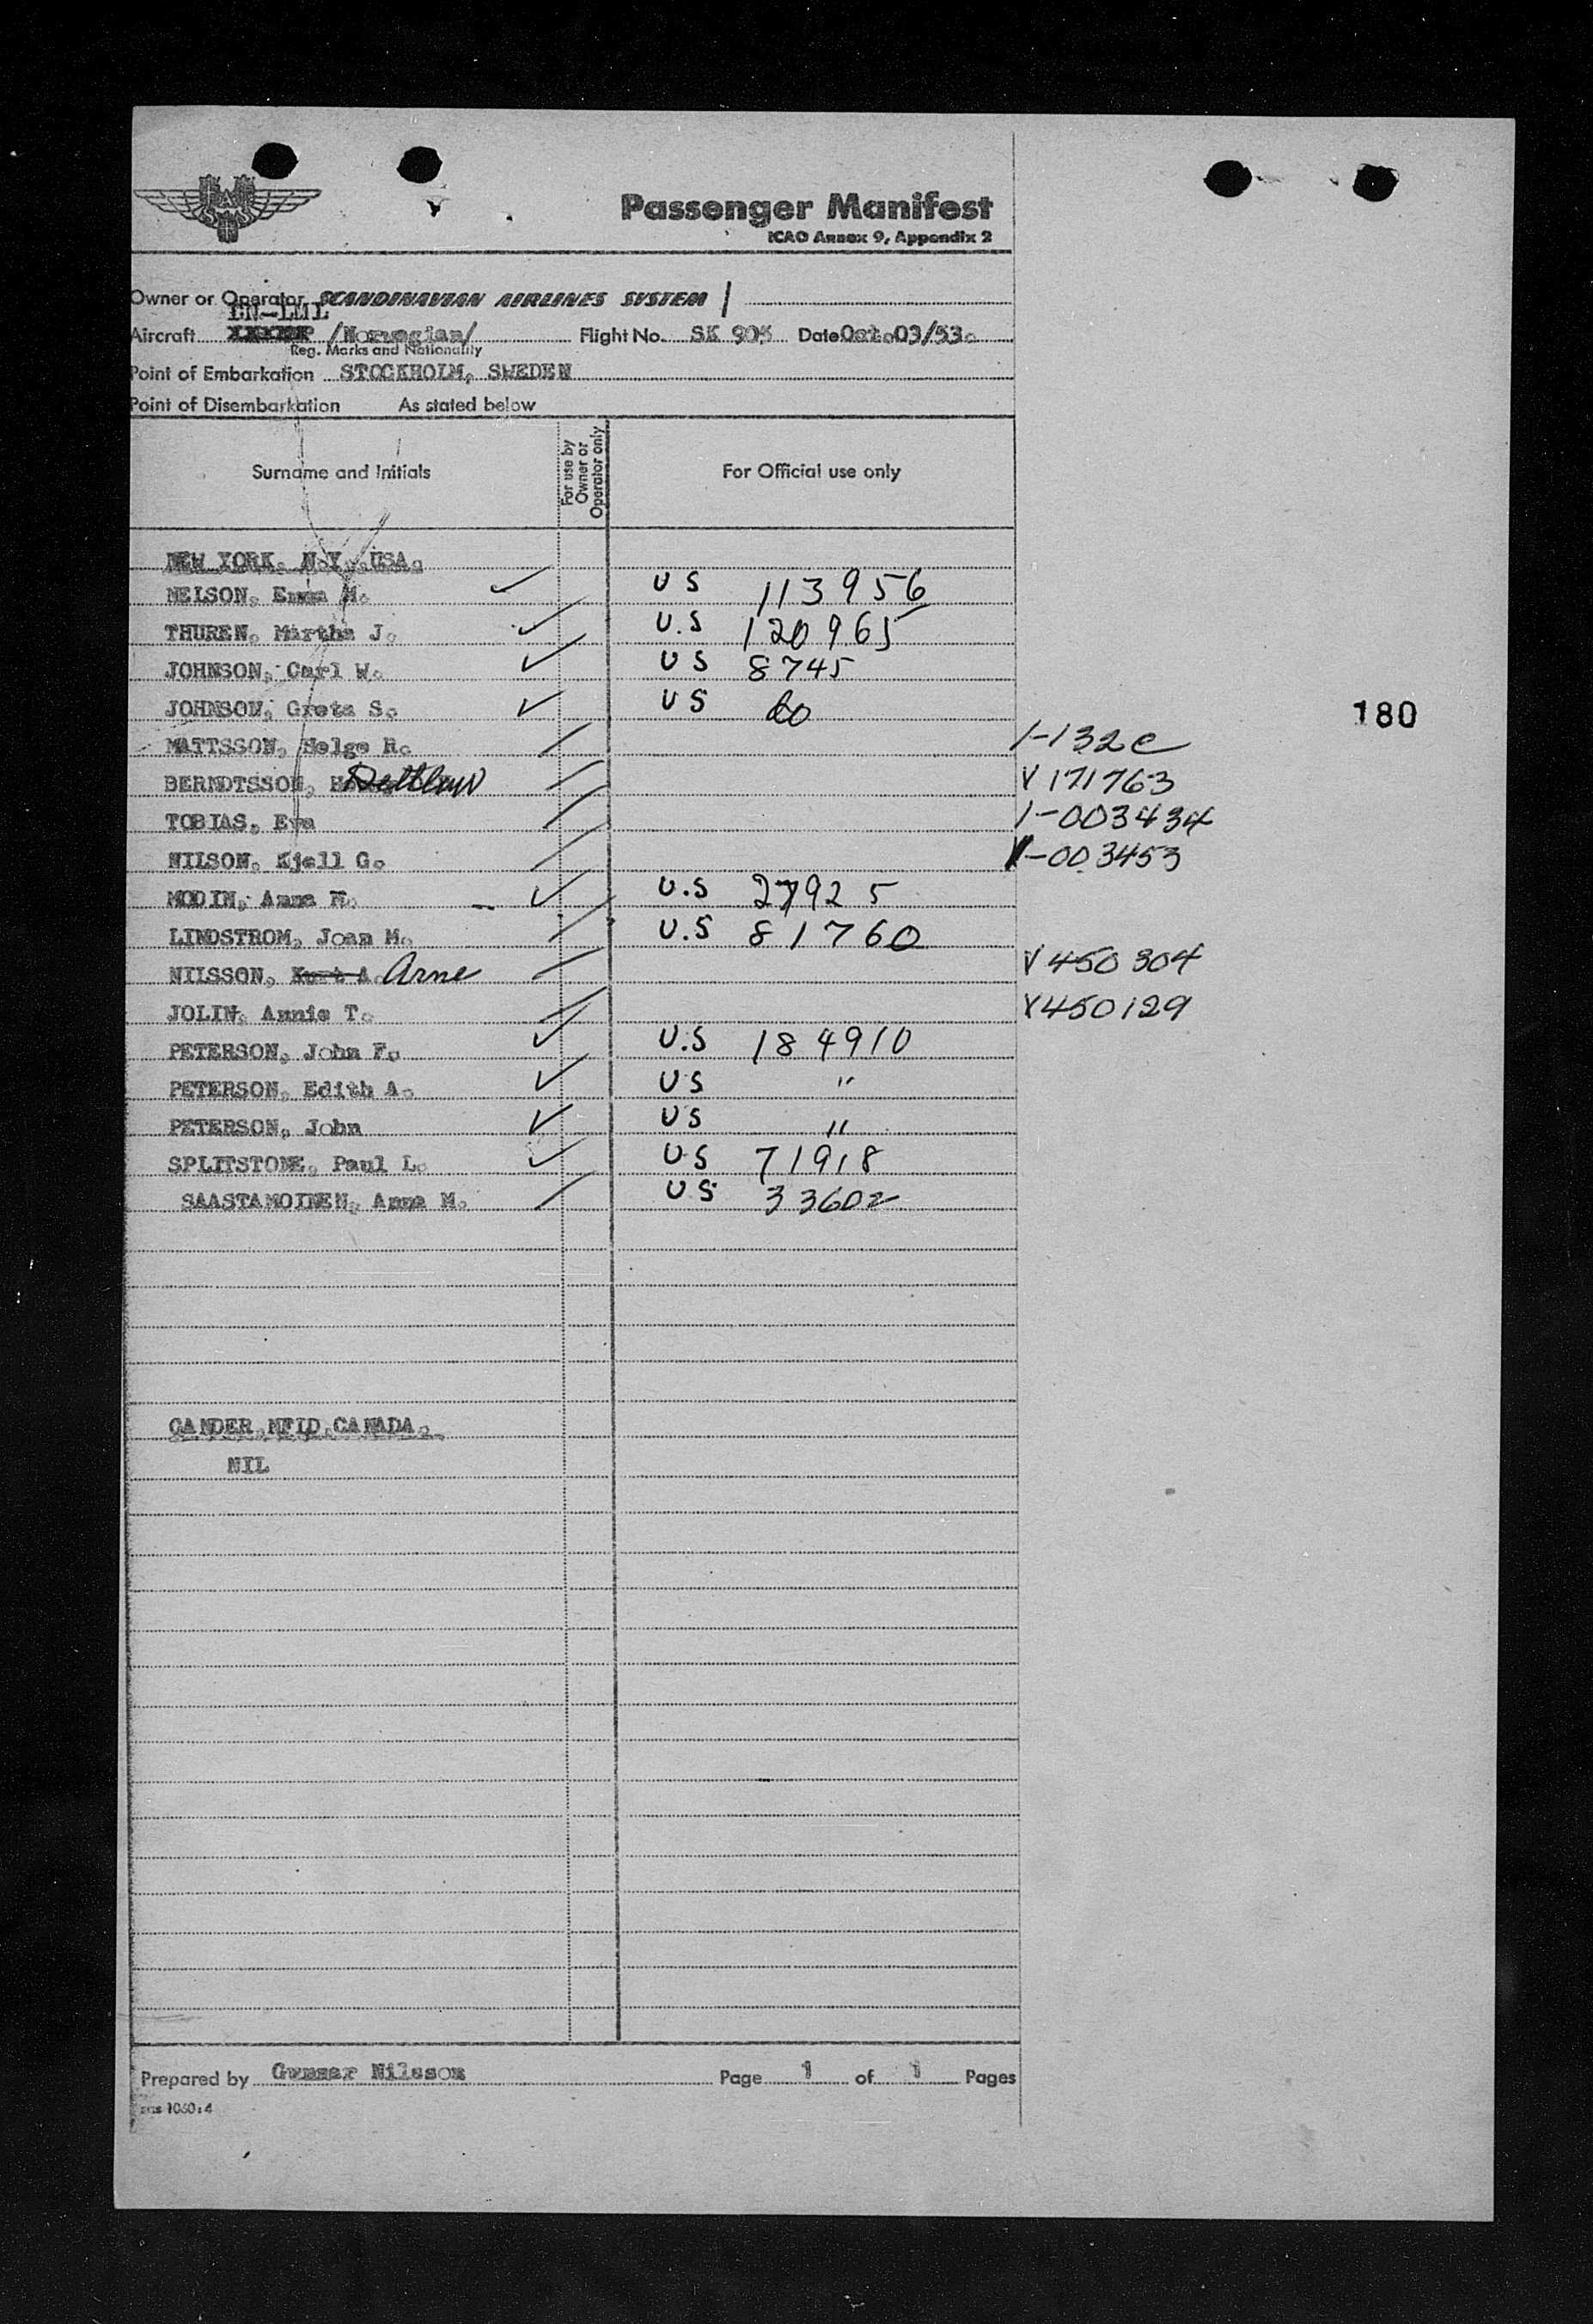 SAS
Passenger Manifest
ICAO Annex 9, Appendix 2
Owner or Operator SCANDINAVIAN AIRLINES SYSTEM
LN-LML
Aircraft /Norwegian/ Flight No. SK 905 Date Oct.03/53.
Reg. Marks and Nationality
Point of Embarkation STOCKHOLM, SWEDEN
Point of Disembarkation As stated below
Surname and Initials For use by Owner or Operator only For Official use only
NEW YORK, N.Y., USA.
NELSON, Emma M. US 113956
THUREN, Martha J. U.S 120965
JOHNSON, Carl W. US 8745
JOHNSON, Greta S. US do
180
MATTSSON, Helge R. 1-132c
BERNDTSSON, V 171763
TOBIAS, Eva 1-003434
NILSON, Kjell G. -003453
MODIN, Anna U.S 27925
LINDSTROM, Joan M. U.S 81760
NILSSON, Kurt A. Arne V 450304
JOLIN, Annie T. V450129
PETERSON, John F. U.S 184910
PETERSON, Edith A. US "
PETERSON, John US "
SPLITSTONE, Paul L. US 71918
SAASTAMOINEN, Anna M. US 33602
GANDER, NFLD, CANADA.
NIL
Prepared by Gunnar Nilsson Page 1 of 1 Pages
sas 1060:4